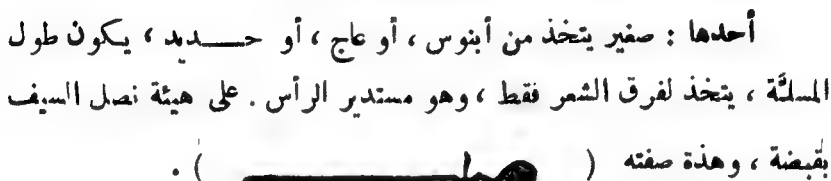 أحدها : صغير يتخذ من أبنوس ، أو عاج ، أو حـــديد ، يكون طول
المسلَّة ، يتخذ لفرق الشعر فقط ، وهو مستدير الرأس . على هيئة نصل السيف
بقبضة ، وهذة صفته ( ) .